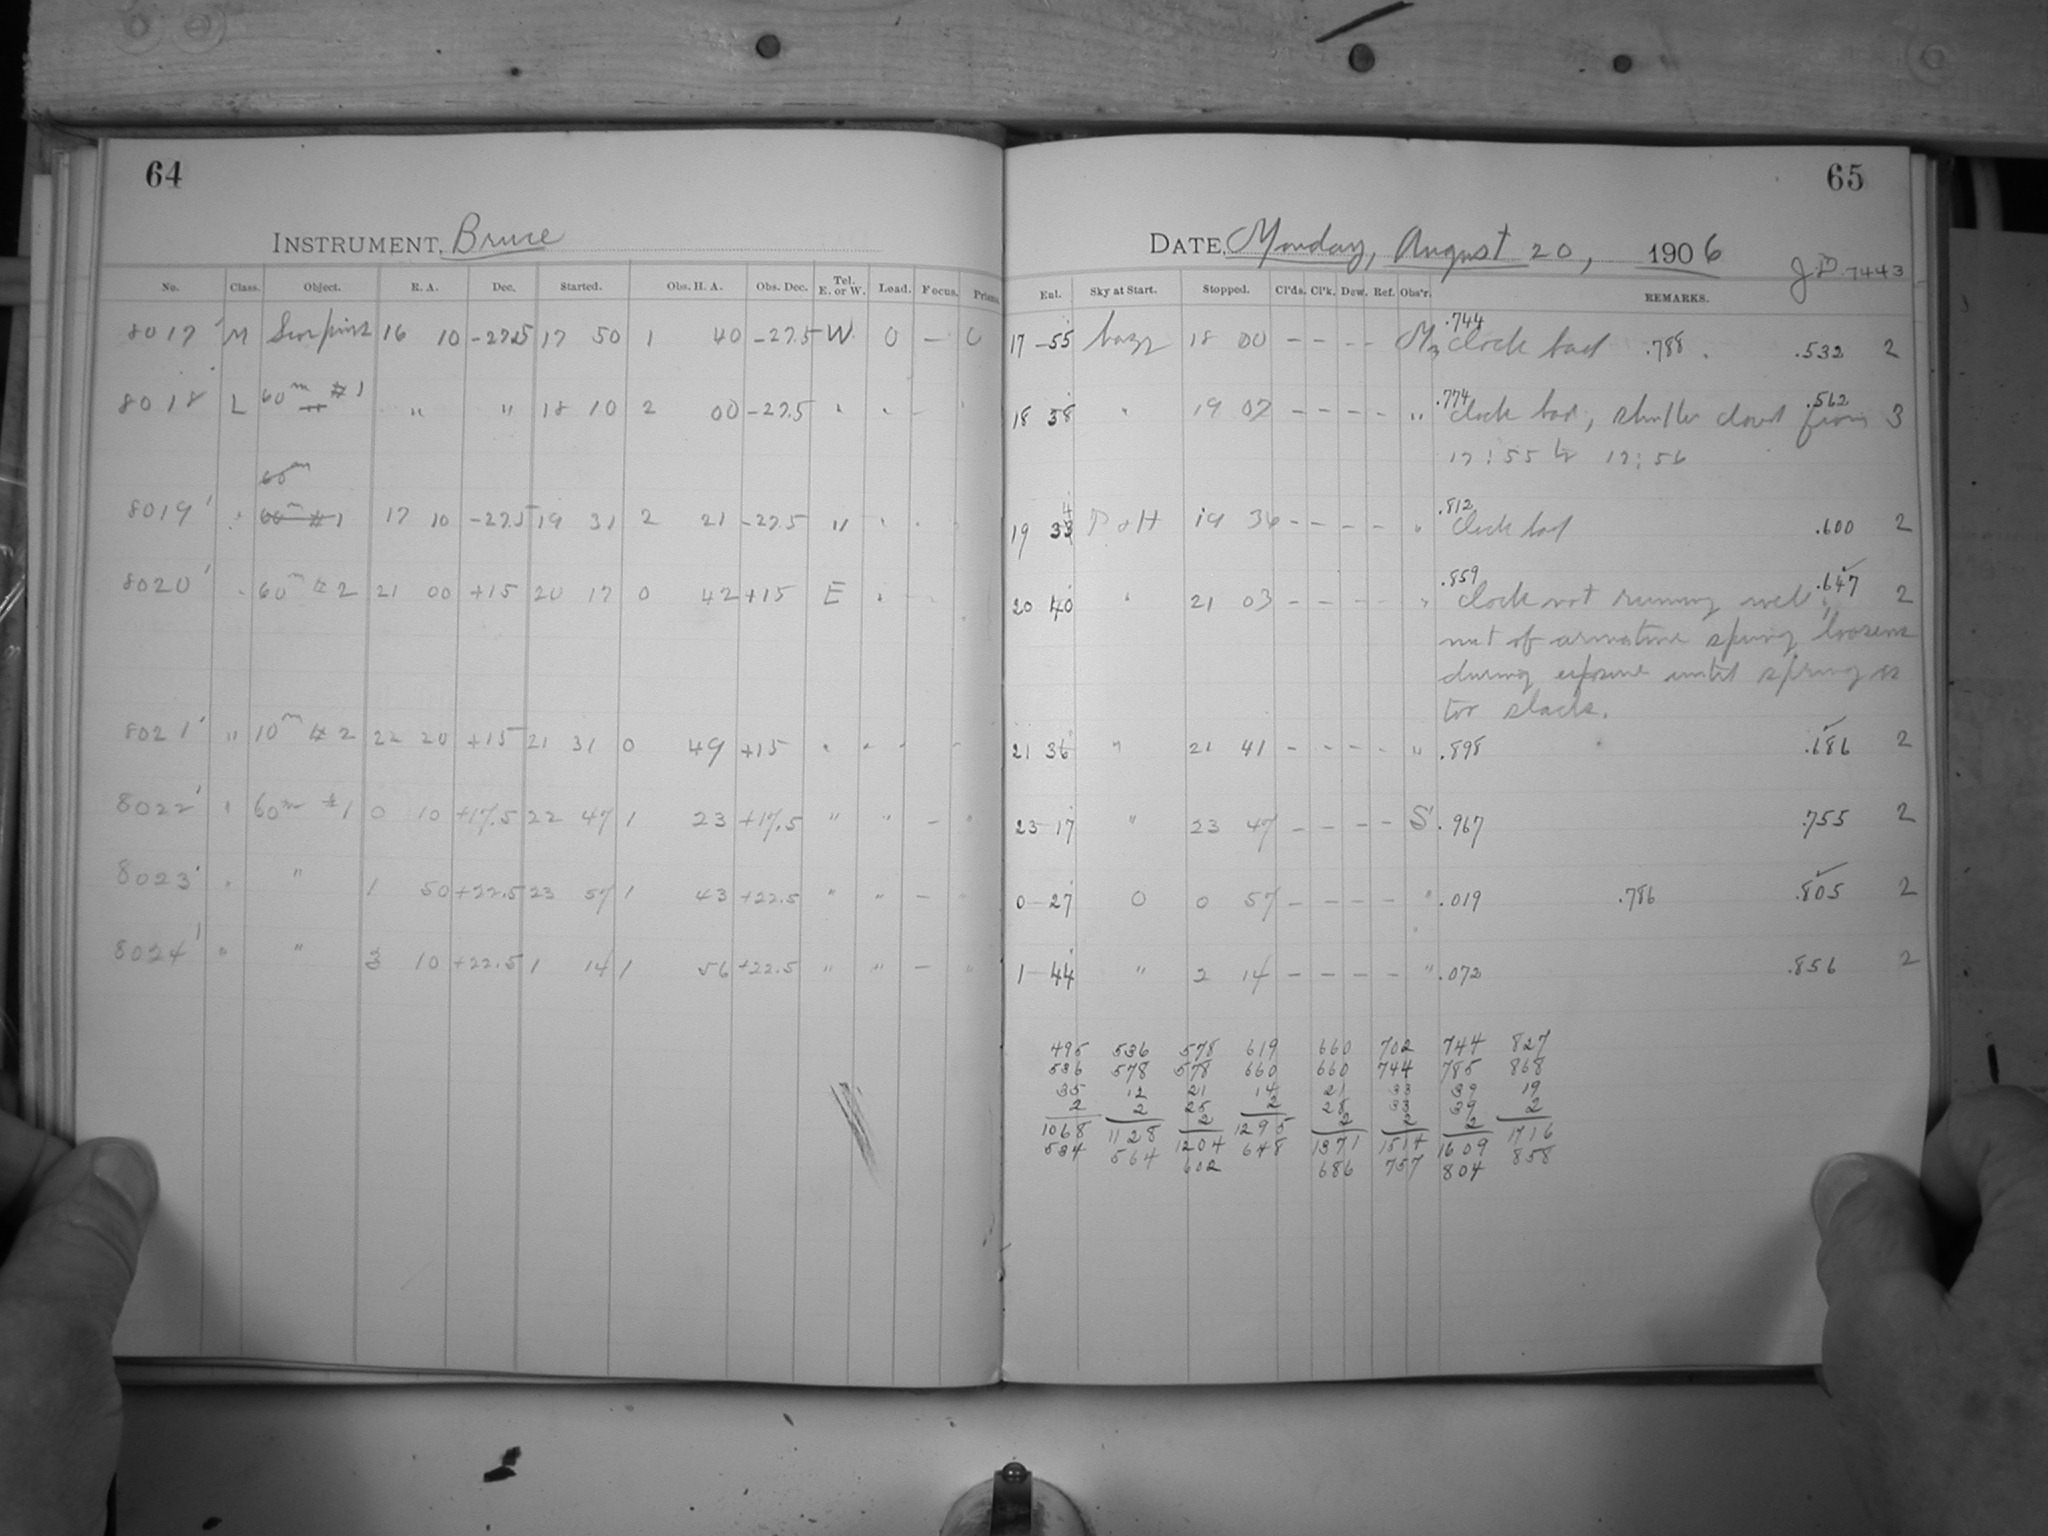 64
INSTRUMENT, Bruce
No. Class. Object. R. A. Dec. Started. Obs. H. A. Obs. Dec. Tel. E. or W. Load. Focus. Prism.
8017' M Scorpius 16 10 -27.5 17 50 1 40 -27.5 W. 0 —
8018' L 60m #1 " " 18 10 2 00 -27.5
60m
8019' 60m #1 17 10 -27.5 19 31 2 21 -27.5 "
8020' 60m #2 21 00 +15 20 17 0 42 +15 E
8021' " 10m #2 22 20 +15 21 31 0 49 +15
8022' " 60m #1 0 10 +17.5 22 47 1 23 +17.5 " " — "
8023' " " 1 50 +22.5 23 57 1 43 +22.5 " " — "
8024' " " 3 10 +22.5 1 14 1 56 +22.5 " " — "
65
DATE, Monday, August 20, 1906
J.D. 7443
Ent. Sky at Start. Stopped. Cl'ds. Cl'k. Dew. Ref. Obs'r. REMARKS.
.744
17-55 hazy 18 00 - - - - clock bad .788 .532 2
.774 .562
18 38 " 19 07 - - - - " clock bad, shutter closed from 3
17:55 to 17:56
.812
19 33 4 19 36 - - - - " clock bad .600 2
.859 .647
20 40 " 21 03 - - - - " clock not running well, 2
nut of armature spring loosens
during exposure until spring is
too slack.
21 36 " 21 41 - - - - " .898 .686 2
23-17 " 23 47 - - - - S .967 .755 2
0-27 0 0 57 - - - - " .019 .786 .805 2
1-44 " 2 14 - - - - " .072 .856 2
495 536 578 619 660 702 744 827
536 578 578 660 660 744 785 868
35 12 21 14 21 33 39 19
2 2 25 2 28 33 39 2
2 2 2 2
1068 1128 1204 1295 1371 1514 1609 1716
534 564 602 648 686 757 804 858